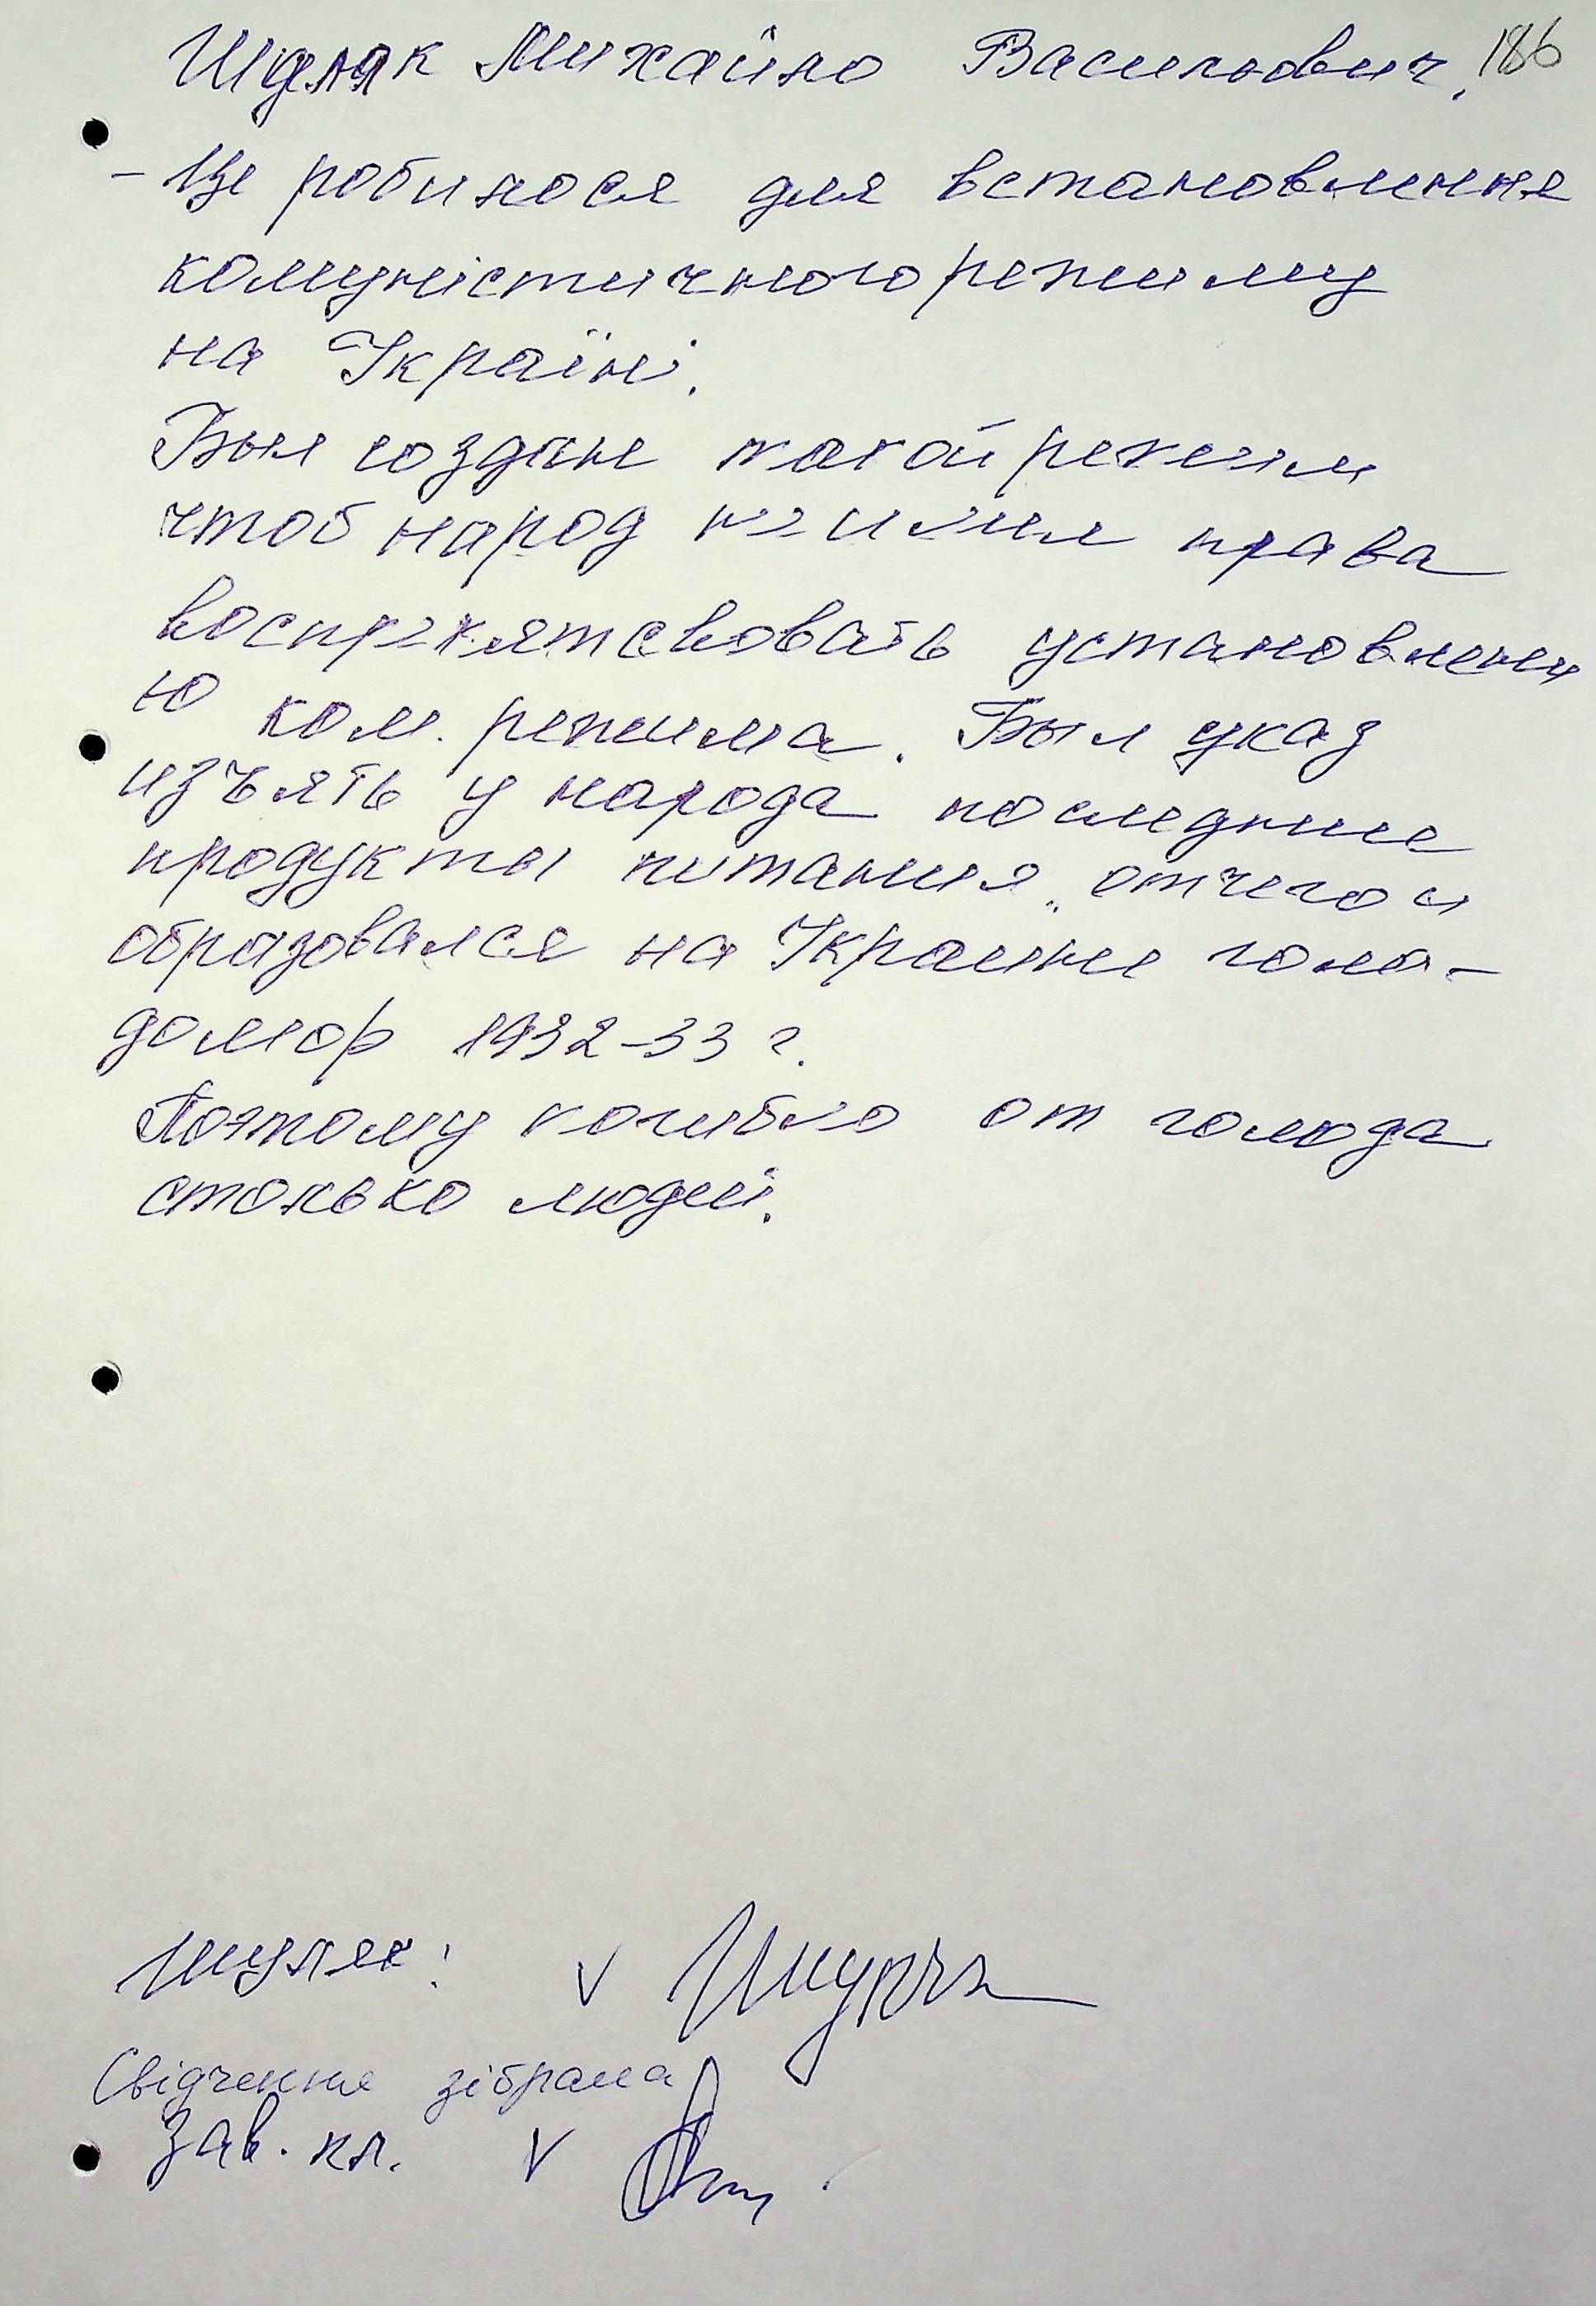 Шуляк Михайло Васильович. 186
- Це робилося для встановлення
комуністичного режиму
на Україні.
Был создан такой режим
чтоб народ не имел права
воспрепятсвовать установлени
ю ком. режима. Был указ
изъять у народа последние
продукты питания, отчего и
образовался на Украине голо-
домор 1932-33 г.
Поэтому погибло от голода
столько людей.
Шуляк: V
Свідчення зібрала
Зав. кл. V